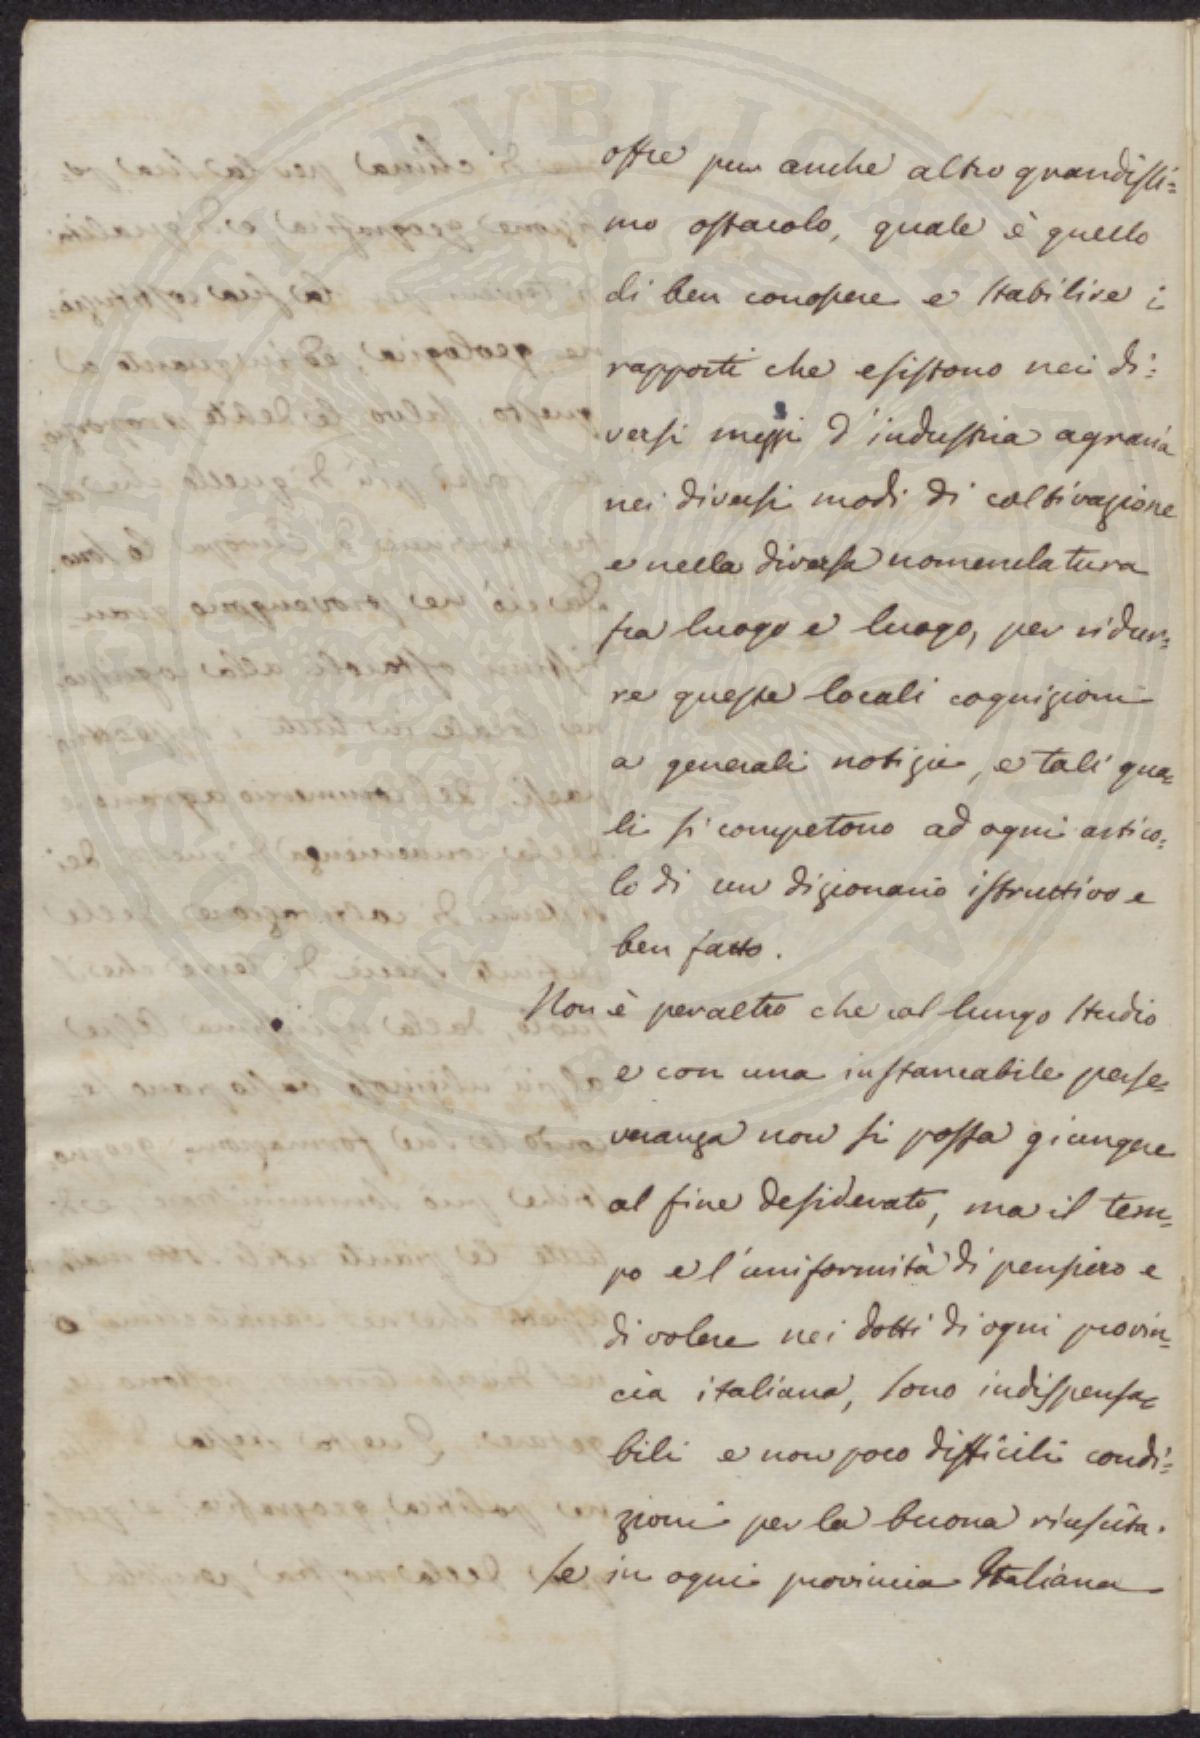 offre pur anche altro grandissi=
mo ostacolo, quale è quello
di ben conoscere e stabilire i
rapporti che esistono nei di=
versi mezzi d'industria agraria
nei diversi modi di coltivazione
e nella diversa nomenclatura
fra luogo e luogo, per ridur=
re queste locali cognizioni
a generali notizie, e tali qua=
li si competono ad ogni artico=
lo di un dizionario istruttivo e
ben fatto.
Non è peraltro che col lungo studio
e con una instancabile perse=
veranza non si possa giungere
al fine desiderato, ma il tem=
po e l'uniformità di pensiero e
di volere nei dotti di ogni provin=
cia italiana, sono indispensa=
bili e non poco difficili condi=
zioni per la buona riuscita.
Se in ogni provincia Italiana